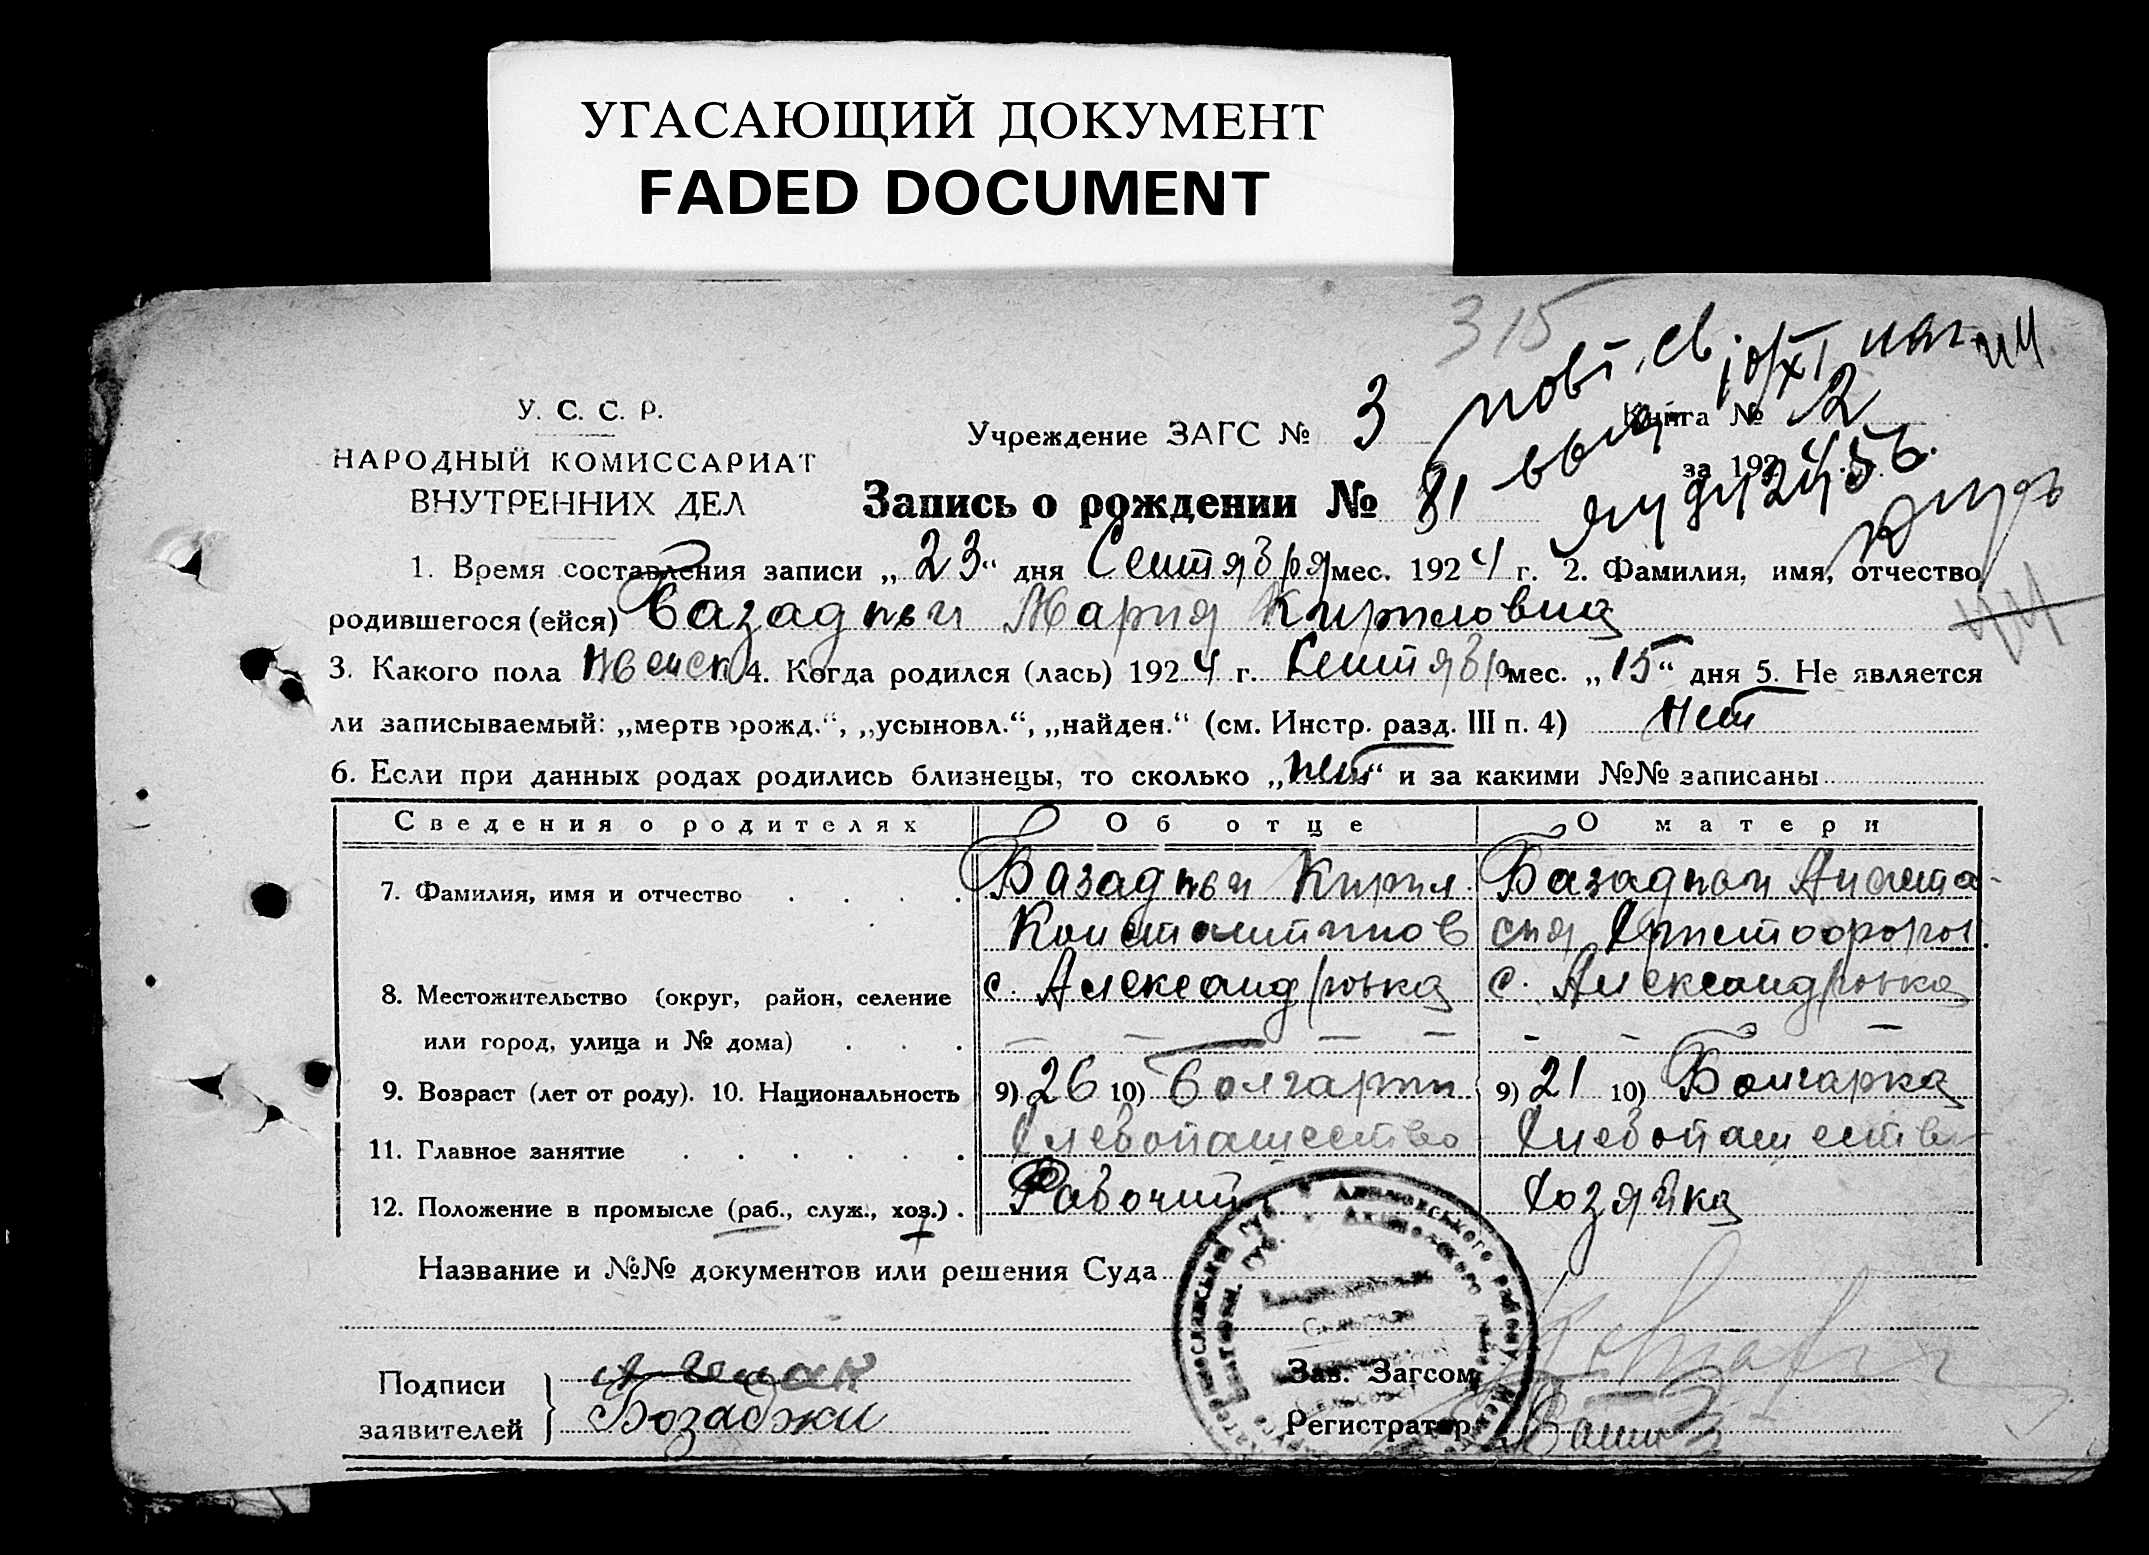 УГАСАЮЩИЙ ДОКУМЕНТ
FADED DOCUMENT
315
У. С. С. Р.
НАРОДНЫЙ КОМИССАРИАТ
ВНУТРЕННИХ ДЕЛ
Учреждение ЗАГС № 3
Книга № 2
за 1924
Запись о рождении № 81
1. Время составления записи „23“ дня Сентября мес. 1924 г. 2. Фамилия, имя, отчество
родившегося (ейся) Базаджи Мария Кириловна
3. Какого пола женск 4. Когда родился (лась) 1924 г. Сентябр мес. „15“ дня 5. Не является
ли записываемый: „мертворожд.“, „усыновл.“, „найден.“ (см. Инстр. разд. III п. 4) Нет
6. Если при данных родах родились близнецы, то сколько „нет“ и за какими №№ записаны
Сведения о родителях Об отце О матери
7. Фамилия, имя и отчество Базаджи Кирил. Базаджи Анаста-
Константинов сия Христофоров.
8. Местожительство (округ, район, селение с. Александровка с. Александровка
или город, улица и № дома)
9. Возраст (лет от роду). 10. Национальность 9) 26 10) Болгарин 9) 21 10) Болгарка
11. Главное занятие Хлебопашество Хлебопашество
12. Положение в промысле (раб., служ., хоз.) Рабочий Хозяйка
Название и №№ документов или решения Суда
Подписи
заявителей Бозаджи
Зав. Загсом
Регистратор